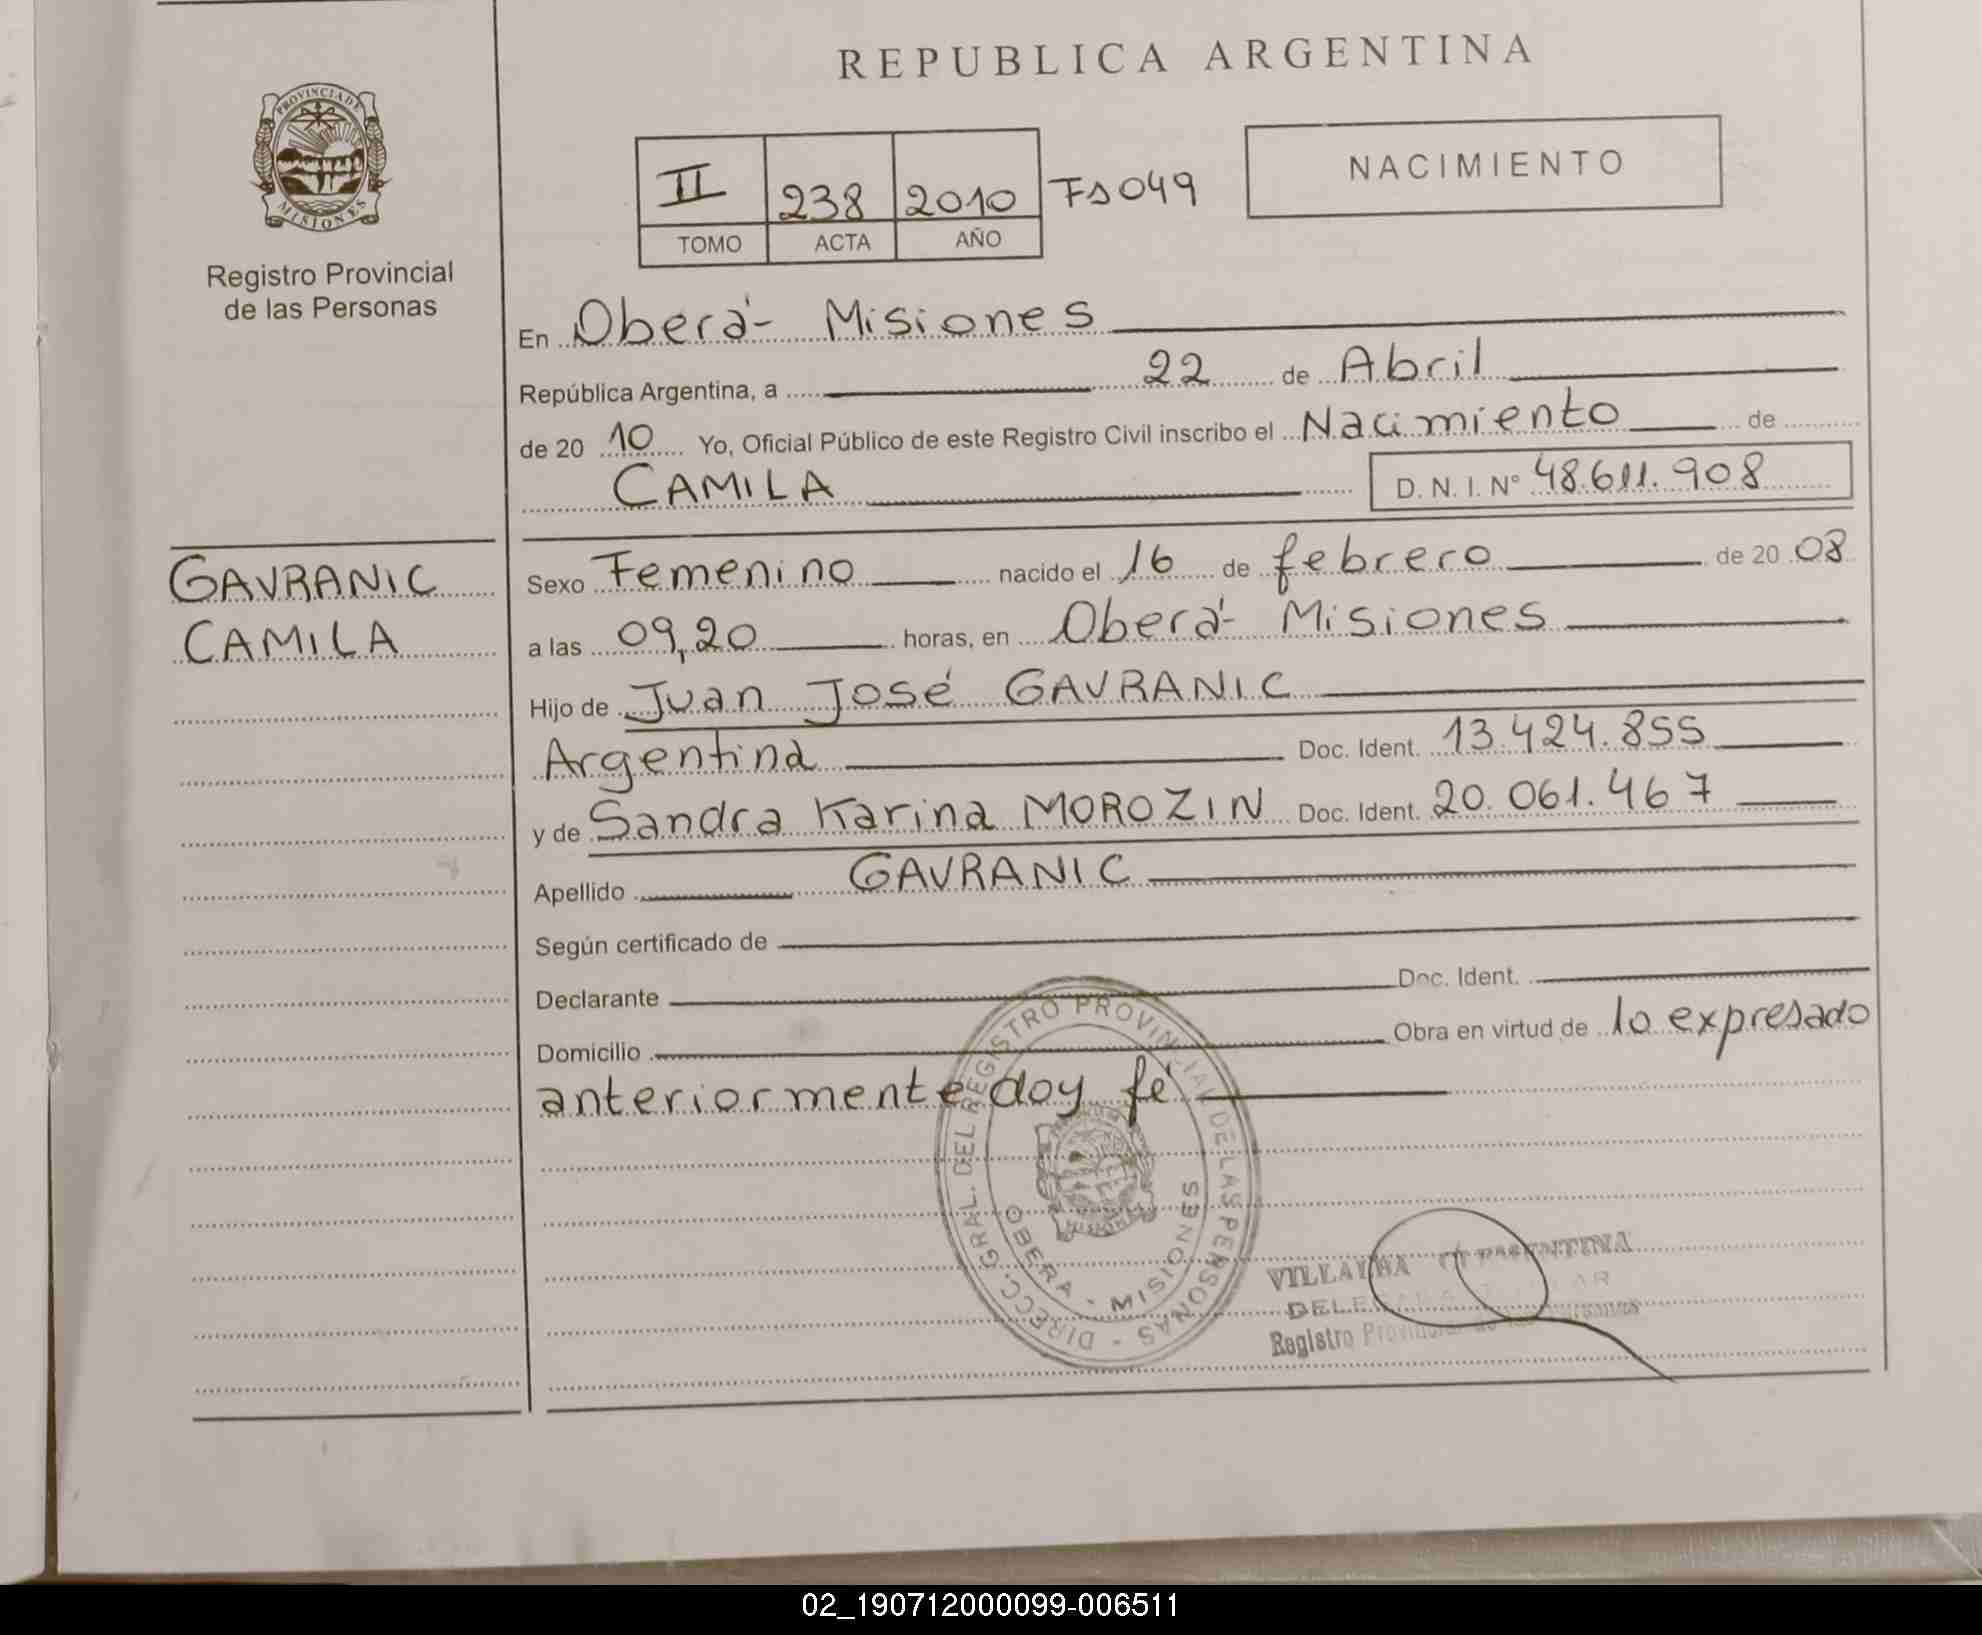 REPUBLICA ARGENTINA
PROVINCIA DE
MISIONES
Registro Provincial
de las Personas
II 238 2010 Fs 049
TOMO ACTA AÑO
NACIMIENTO
En Oberá- Misiones
República Argentina, a 22 de Abril
de 20 10 Yo, Oficial Público de este Registro Civil inscribo el Nacimiento de
CAMILA D. N. I. N° 48.611.908
GAVRANIC
CAMILA
Sexo Femenino nacido el 16 de febrero de 20 08
a las 09,20 horas, en Oberá- Misiones
Hijo de Juan José GAVRANIC
Argentina Doc. Ident. 13.424.855
y de Sandra Karina MOROZIN Doc. Ident. 20.061.467
Apellido GAVRANIC
Según certificado de
Declarante Doc. Ident.
Domicilio Obra en virtud de lo expresado
anteriormente doy fé
DIRECC. GRAL. DEL REGISTRO PROVINCIAL DE LAS PERSONAS -
OBERA - MISIONES
VILLALBA
Registro Provincial de las Personas
02_190712000099-006511